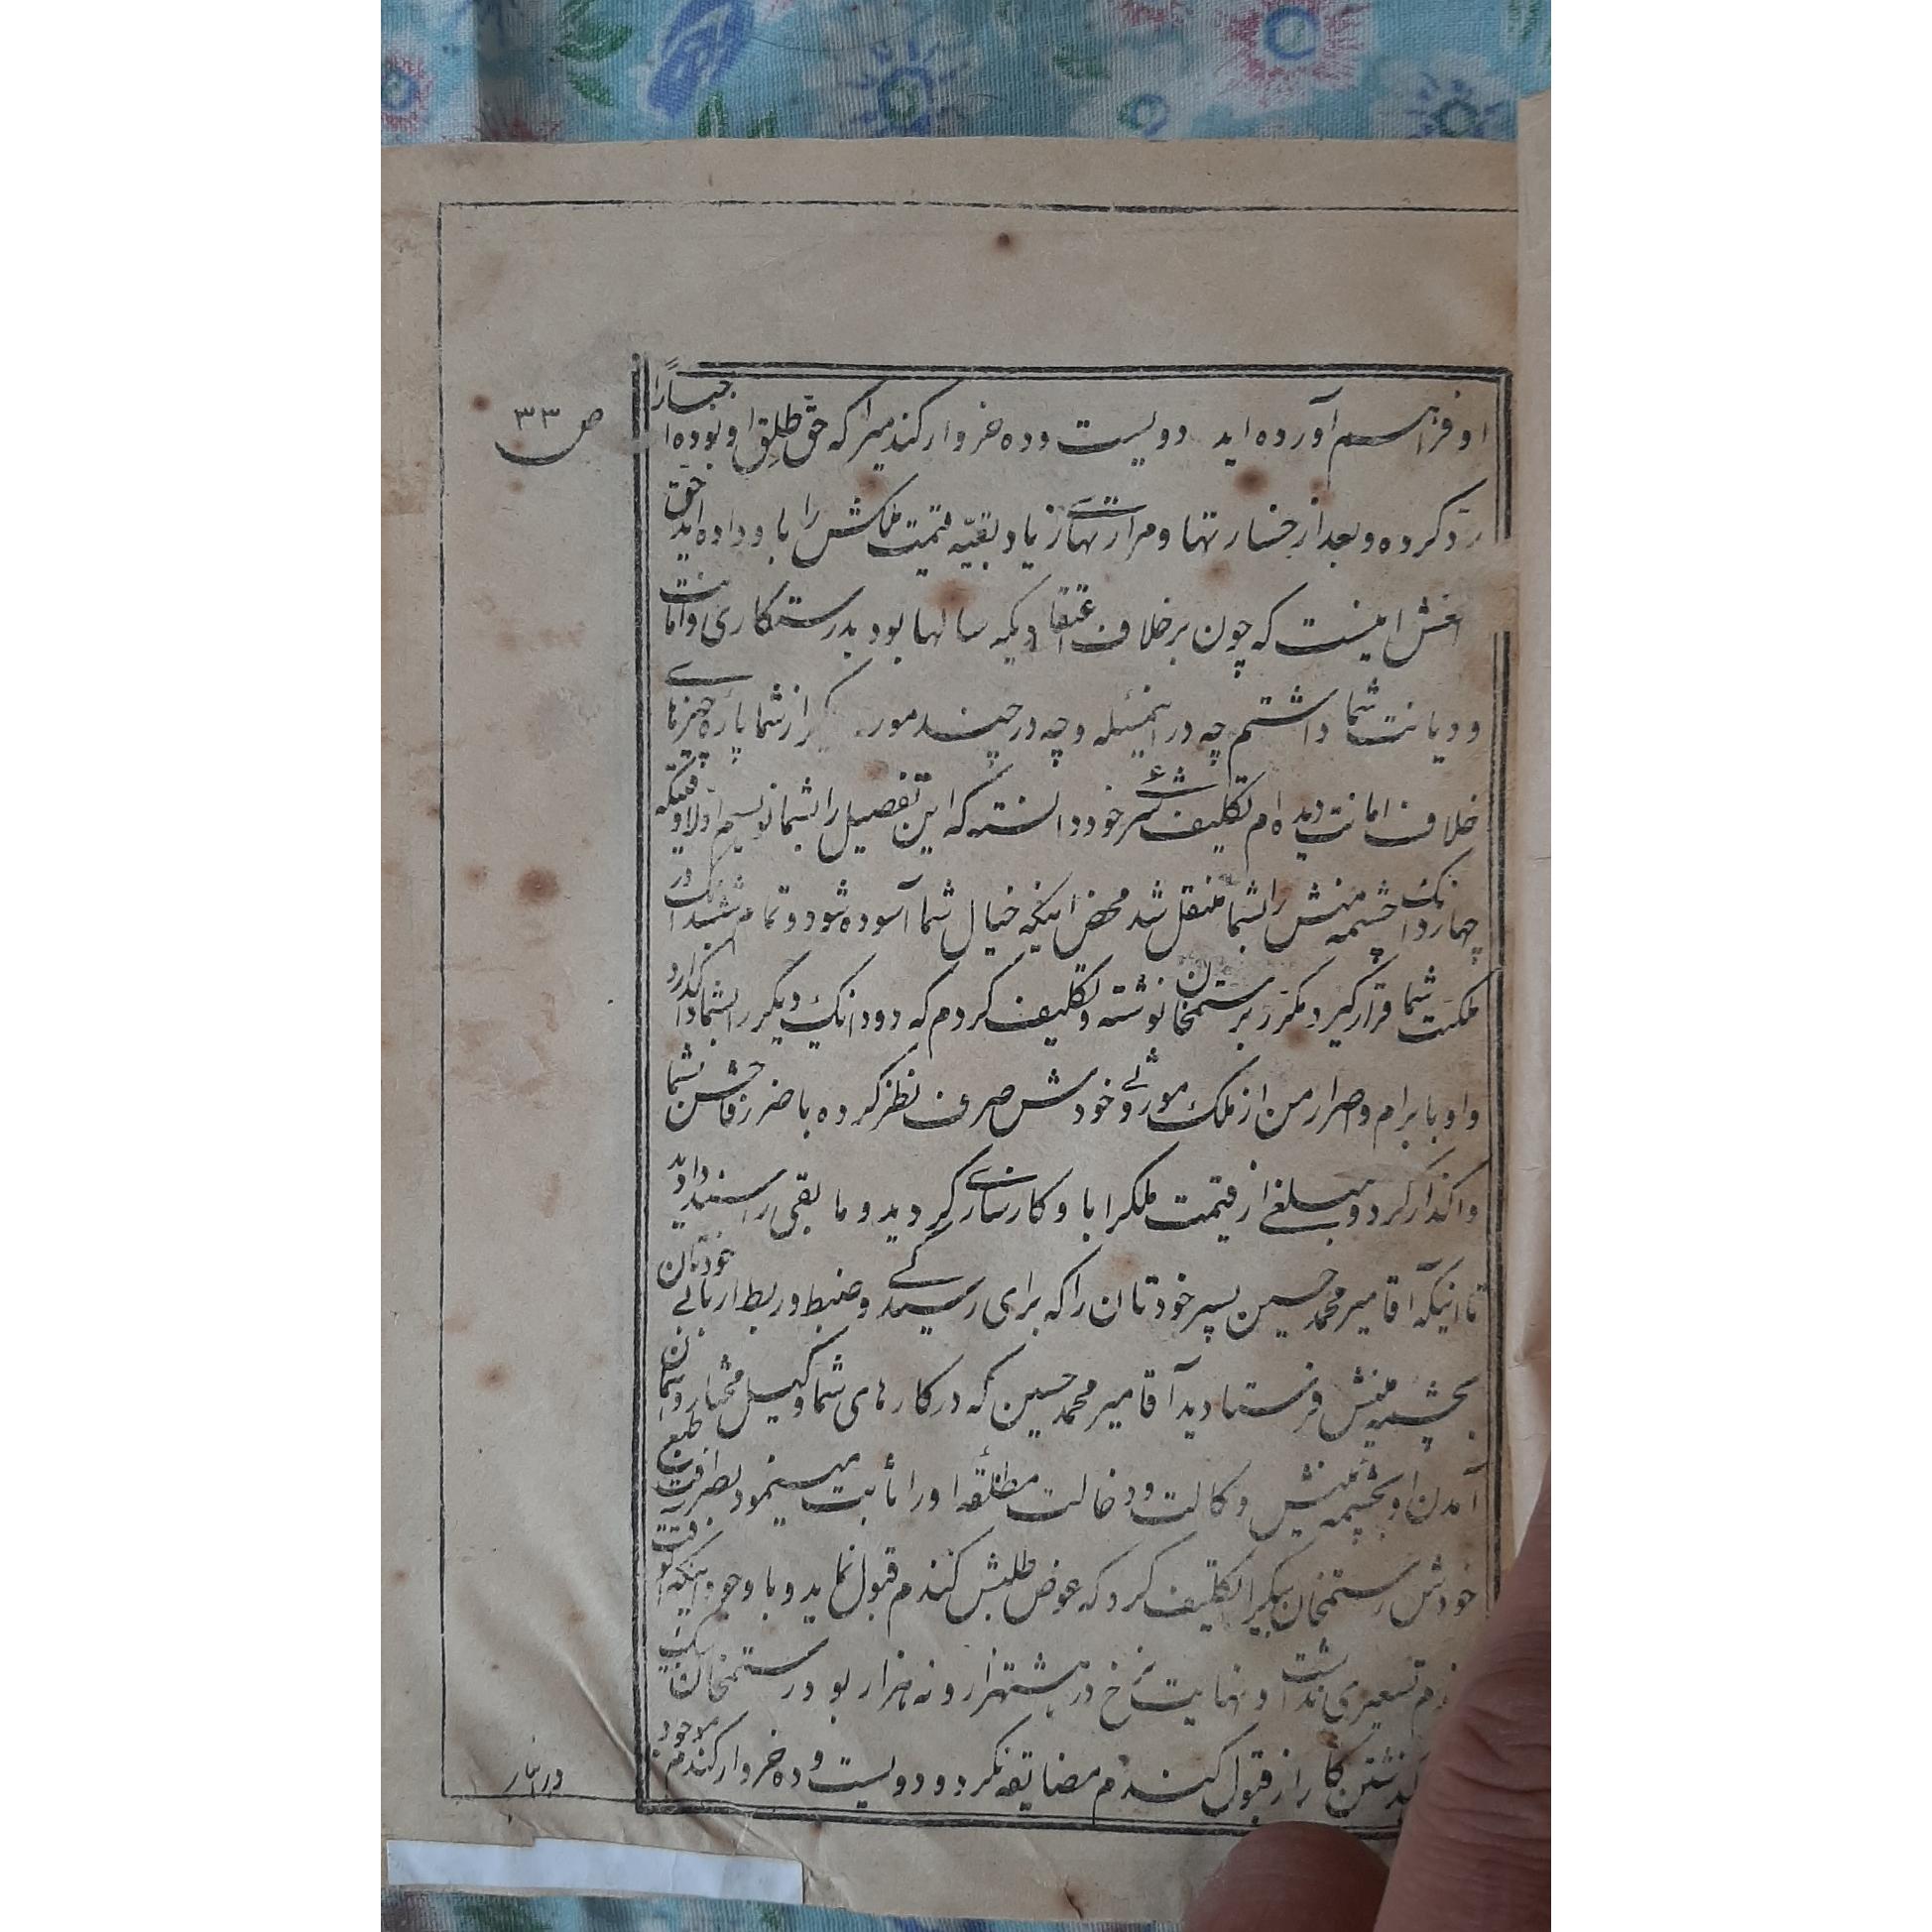 او فراهم آورده اید دویست و ده خروار گندمیرا که حقّ طلِق او بوده اجباراً
ص ۳۳
ردّ کرده و بعد از خسارتها و مرارتهای زیاد بقیّه قیمت ملکش را باو داده اید حق
اینست که چون بر خلاف اعتقادیکه سالها بود بدرستکاری و امانت
و دیانت شما داشتم چه در اینمسئله و چه در چند مورد از شما پاره چیزهای
خلاف امانت دیده ام تکلیف شرعی خود دانسته که این تفصیل را بشما نویسم اولا وقتیکه
چهار دانک چشمه منش را بشما منتقل شد محض اینکه خیال شما آسوده شود و تمام ششدانک در
ملکیت شما قرار گیرد مکرّر برستمخان نوشته و تکلیف کردم که دو دانک دیگر را بشما واگذارد
و او بابرام و اصرار من از ملک موروثی خودش صرف نظر کرده با ضرر فاحش بشما
واگذار کرد و مبلغی از قیمت ملکرا باو کارسازی کردید و مابقی را سند دادید
تا اینکه آقا میر محمد حسین پسر خودتان را که برای رسیدگی و ضبط و ربط اربابی خودتان
بچشمه منش فرستادید آقا میر محمد حسین که در کارهای شما وکیل مختار و شما
آمدن او بچشمه منش وکالت و دخالت مطلقه او را ثابت مینمود بصرافت طبع
خودش رستمخان بیکرا تکلیف کرد که عوض طلبش گندم قبول نماید و با وجود اینکه آنوقت
تسعیری نداشت و نهایت نرخ در هشتهزار و نه هزار بود رستمخان بیک
کار از قبول گندم مضایقه نکرد و دویست و ده خروار گندم موجود
در انبار